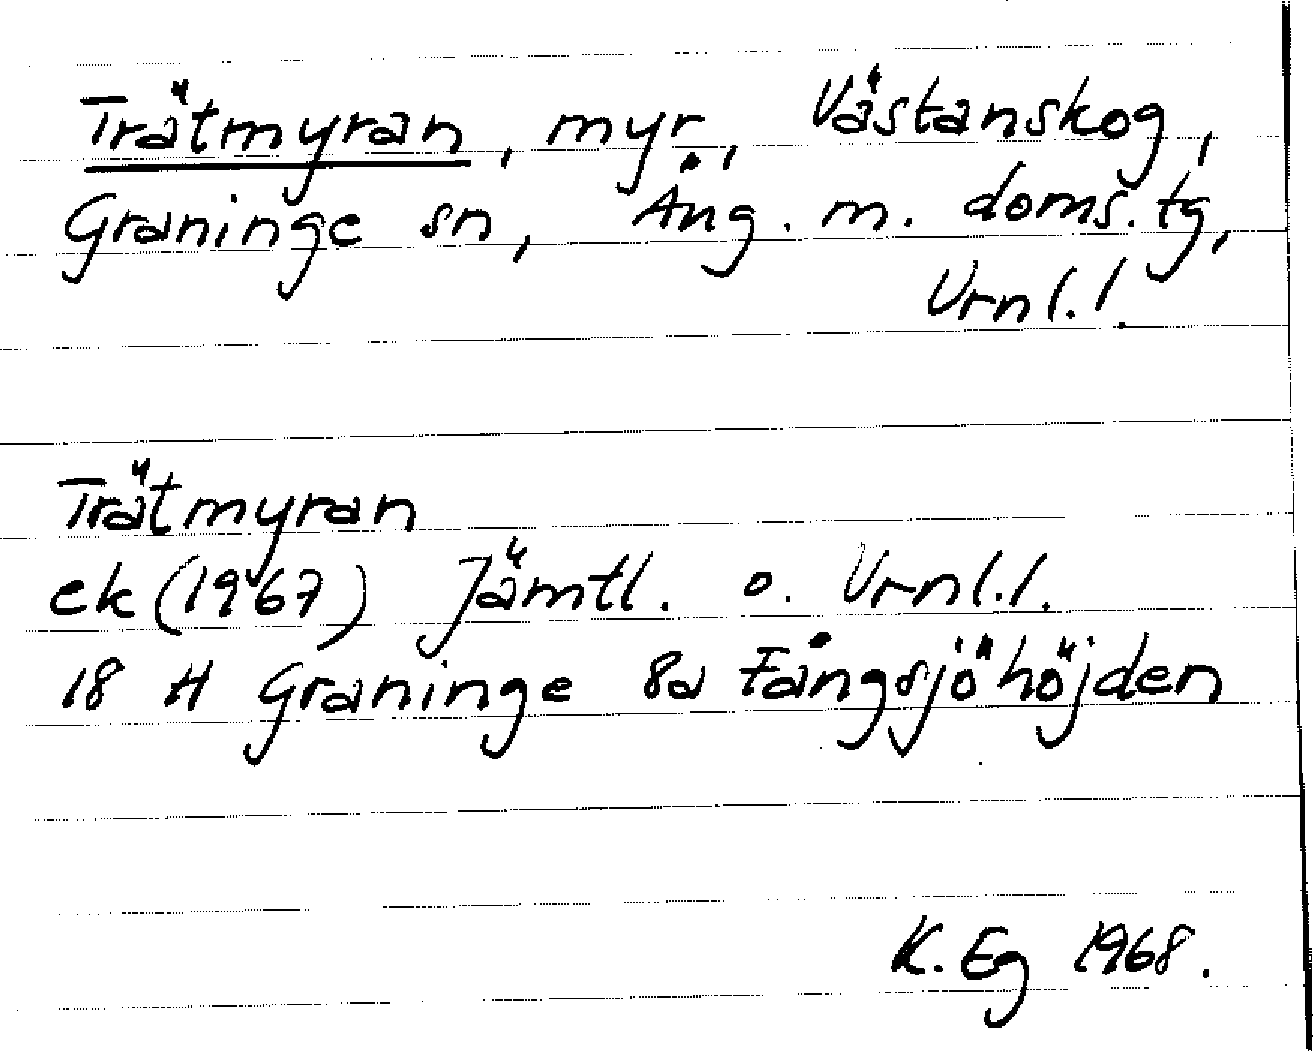 Trätmyran, myr, Västanskog,
Graninge sn, Ång. m. doms. tg,
Vrnl. l.
Trätmyran
ek (1967) Jämtl. o. Vrnl. l.
18 H Graninge 8a Fångsjöhöjden
K. Eg 1968.